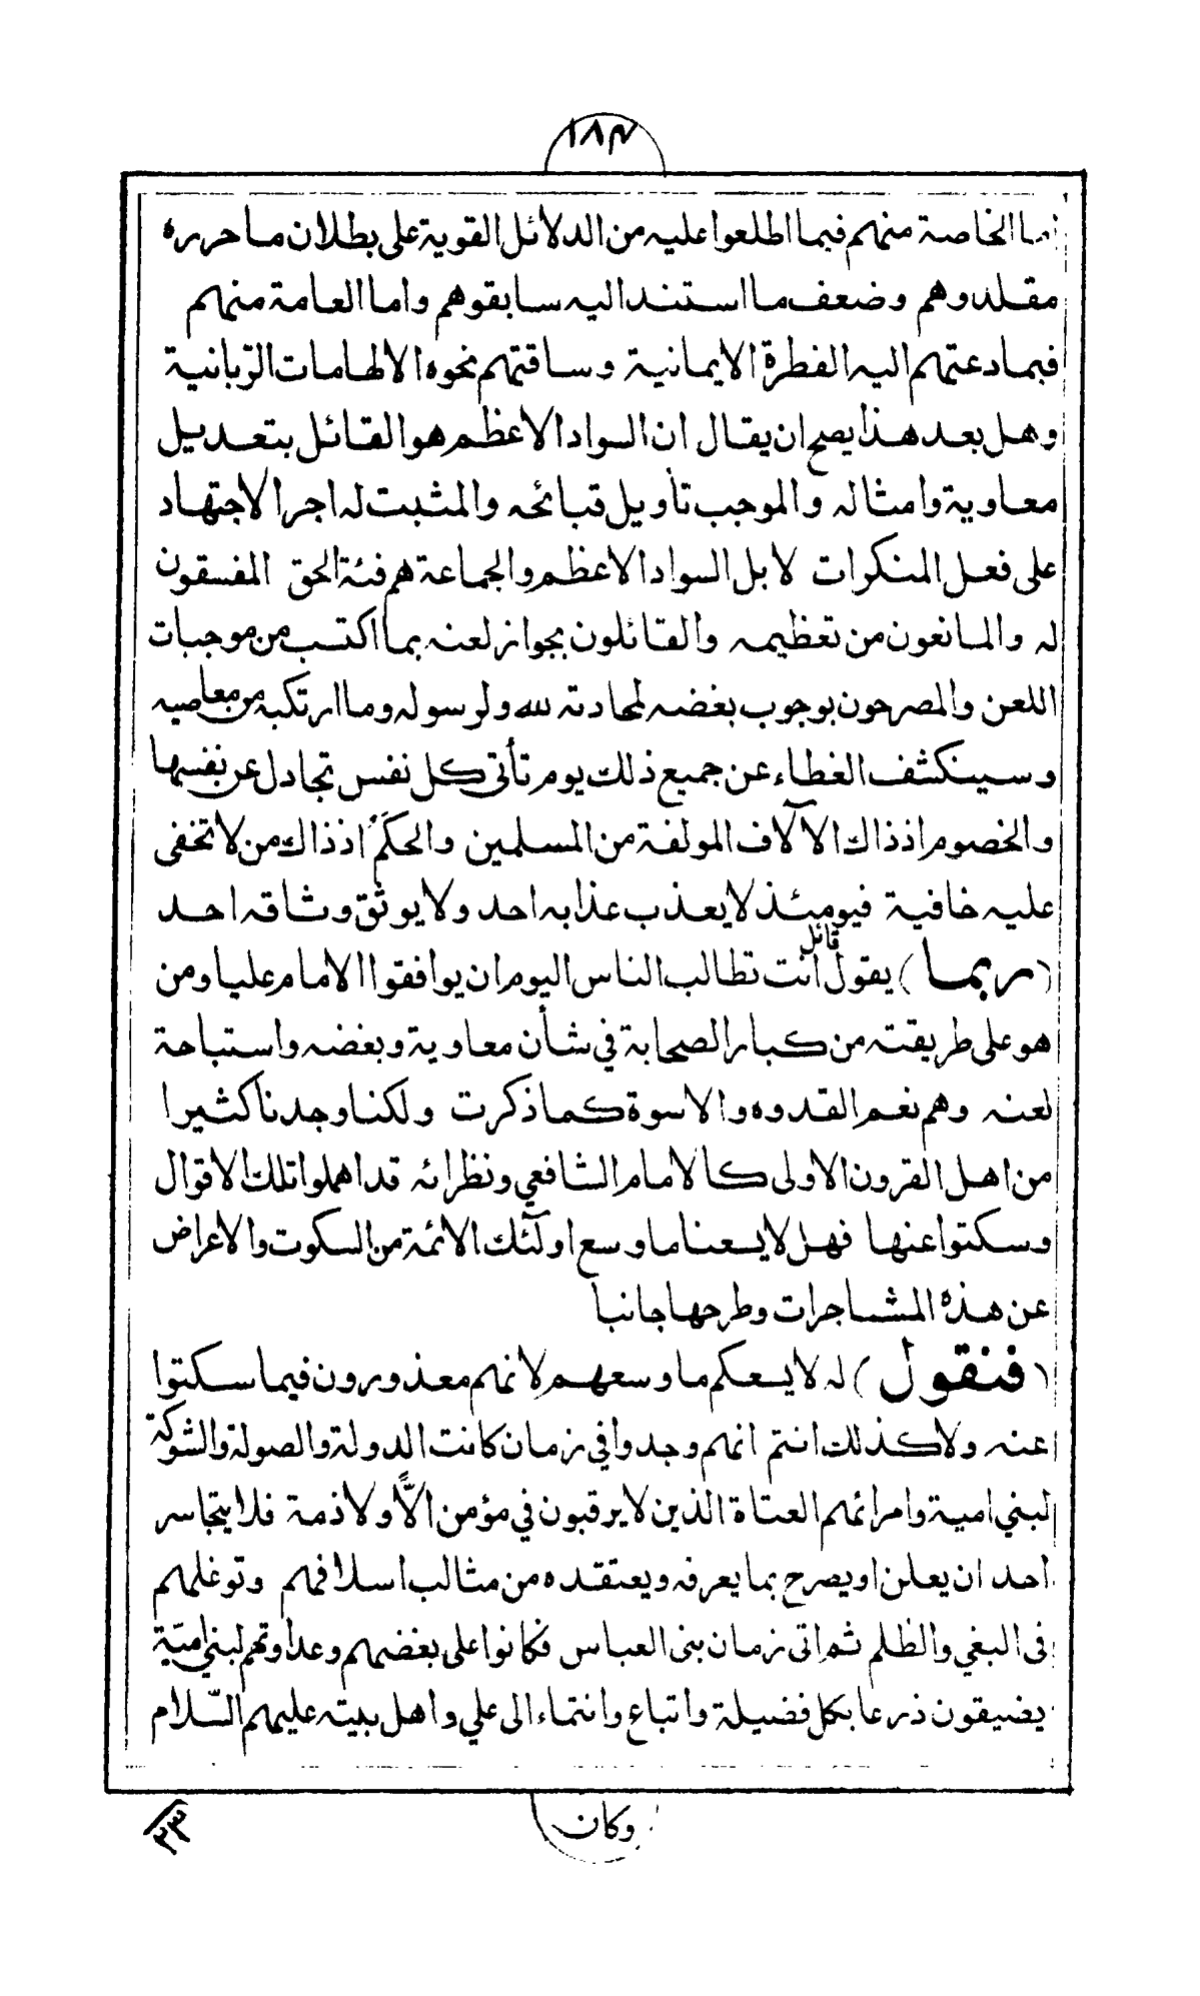 ١٨٤
اما الخاصة منهم فبما اطلعوا عليه من الدلائل القوية على بطلان ما حرره
مقلدوهم وضعف ما استند اليه سابقوهم واما العامة منهم
فبما دعتهم اليه الفطرة الايمانية وساقتهم نحوه الالهامات الرّبانية
وهل بعد هذا يصح ان يقال ان السواد الاعظم هو القائل بتعديل
معاوية وامثاله والموجب تأويل قبائحه والمثبت له اجر الاجتهاد
على فعل المنكرات لا بل السواد الاعظم والجماعة هم فئة الحق المفسقون
له والمانعون من تعظيمه والقائلون بجواز لعنه بما اكتسب من موجبات
اللعن والمصرحون بوجوب بغضه لمحادته لله ولرسوله وما ارتكبه من معاصيه
وسينكشف الغطاء عن جميع ذلك يوم تأتى كل نفس تجادل عن نفسها
والخصوم اذ ذاك الآلاف المولفة من المسلمين والحكَم اذ ذاك من لا تخفى
عليه خافية فيومئذ لا يعذب عذابه احد ولا يوثق وثاقه احد
(ربما) يقول قائل انت تطالب الناس اليوم ان يوافقوا الامام عليا ومن
هو على طريقته من كبار الصحابة في شأن معاوية وبغضه واستباحة
لعنه وهم نعم القدوه والاسوة كما ذكرت ولكنا وجدنا كثيرا
من اهل القرون الاولى كالامام الشافعي ونظرائه قد اهملوا تلك الاقوال
وسكتوا عنها فهل لا يسعنا ما وسع اولٓئك الائمة من السكوت والاعراض
عن هذه المشاجرات وطرحها جانبا
(فنقول) له لا يسعكم ما وسعهم لانهم معذورون فيما سكتوا
عنه ولا كذلك انتم انهم وجدوا في زمان كانت الدولة والصولة والشوكة
لبني امية وامرائهم العتاة الذين لا يرقبون في مؤمن الاًّ ولا ذمة فلا يتجاسر
احد ان يعلن او يصرح بما يعرفه ويعتقده من مثالب اسلافهم وتوغلهم
فى البغي والظلم ثم اتى زمان بنى العباس فكانوا على بغضهم وعداوتهم لبني اميّة
يضيقون ذرعا بكل فضيلة واتباع وانتماء الى علي واهل بيته عليهم السّلام
وكان
٢٣